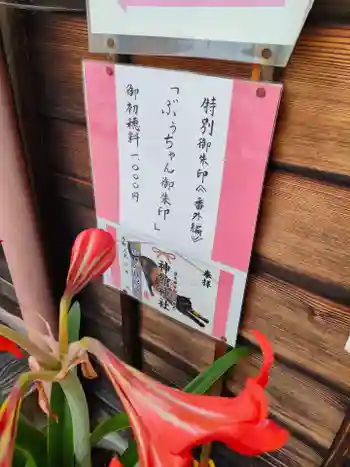 特別御朱印《番外編》
「ぶぅちゃん御朱印」
御初穂料 一、〇〇〇円
奉拝